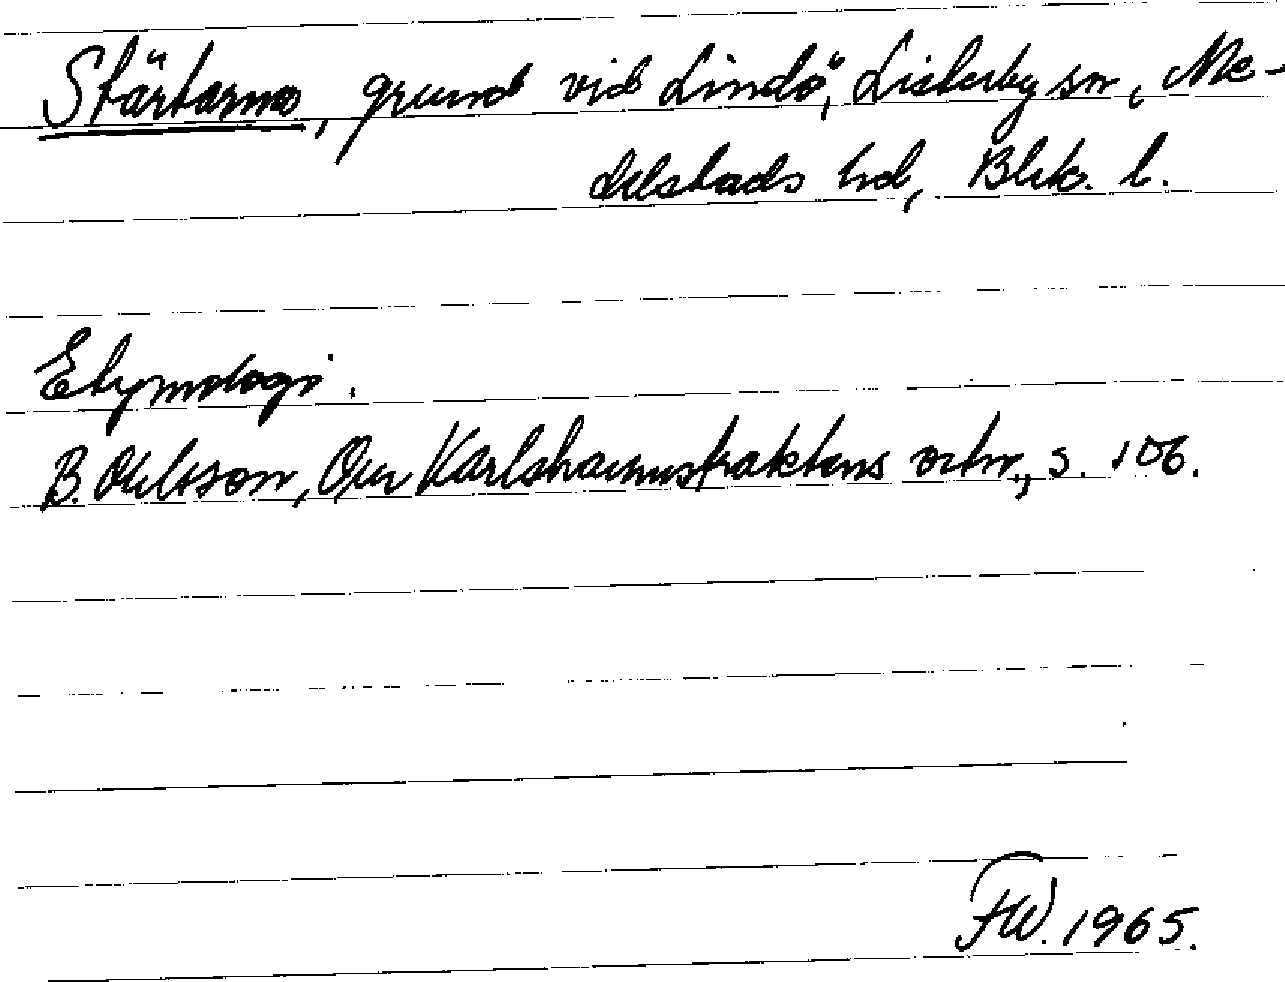 Stärtarna, grund vid Lindö, Listerby sn, Me-
delstads hd, Blek. l.
Etymologi.
B. Ohlsson, Om Karlshamnstraktens ortn., s. 106.
FW. 1965.